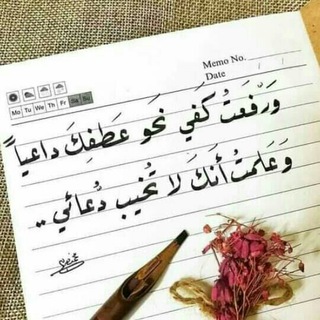 Memo No.
Date
Mo Tu We Th Fr Sa Su
وَرَفَعتُ كَفي نَحوَ عَطفِكَ داعياً
وَعَلمتُ أَنَكَ لَا تُخيب دُعائي ..